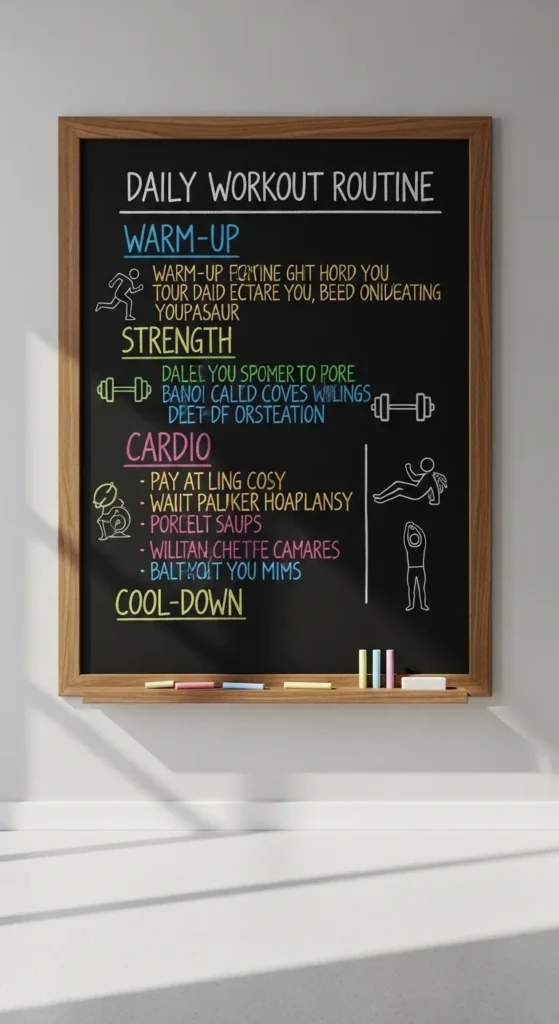 DAILY WORKOUT ROUTINE
WARM-UP
WARM-UP GHT HORD YOU
TOUR DAID ECTARE YOU, BEED
YOUPASAUR
STRENGTH
YOU SPOMER TO PORE
CALED COVES
DEET OF ORSTEATION
CARDIO
- PAY AT LING COSY
- WAIIT PALIKER HOAPLANSY
- PORCELT SAUPS
- WILLTAN CHETFE CAMARES
- YOU MIMS
COOL-DOWN